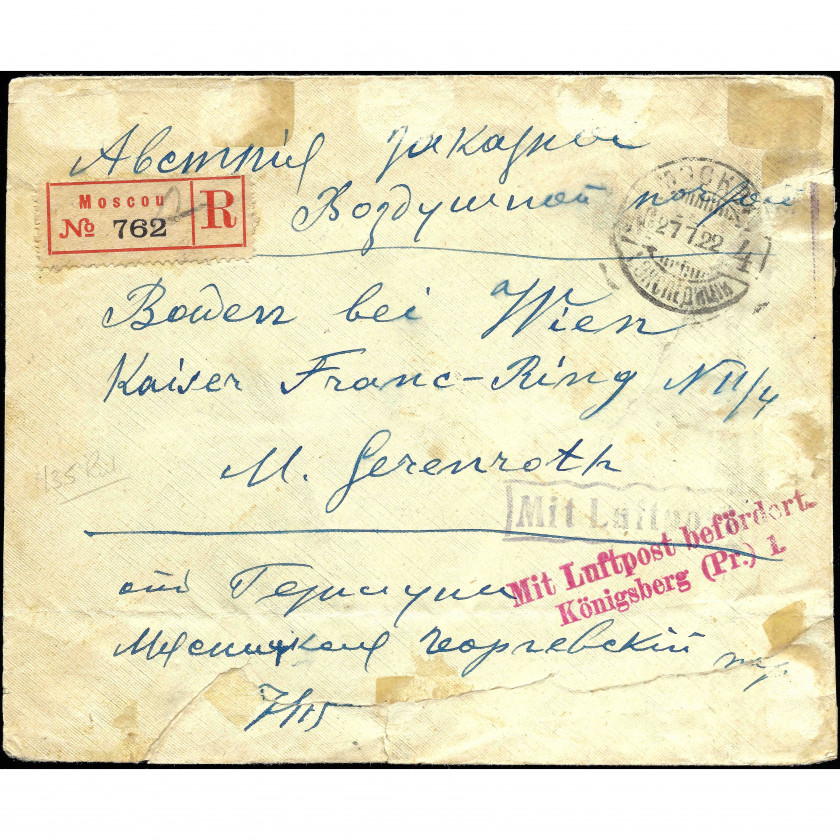 Австрия Заказное
Воздушной почтой
Moscou
№ 762
R
МОСКВА
27.7.22
4
ЭКСПЕДИЦИЯ
Baden bei Wien
Kaiser Franc-Ring N 11/4
M. Gerenroth
135 R.
Mit Luftpo
Mit Luftpost befördert.
Königsberg (Pr.) 1.
от
Мясницкая Георгевский пер.